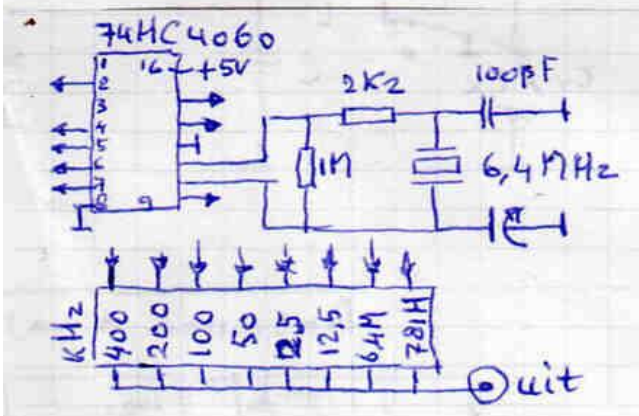 74HC4060
1 16 +5V
2
3
4
5
6
7
8 9
2K2
100pF
1M
6,4MHz
KHz 400 200 100 50 12,5 6,4M 781H
uit